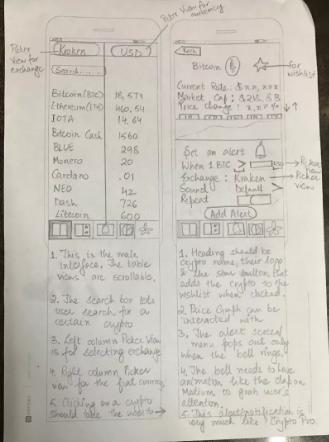 Picker View for currency
Picker View for exchange
Kraken
USD
Search....
Bitcoin (BTC) 18,579
Ethereum(ETH) 460.54
IOTA 14.64
Bitcoin Cash 1560
BLUE 298
Monero 20
Cardano .01
NEO 42
Dash 726
Litecoin 600
1. This is the main interface. The table views are scrollable.
2. The search bar lets user search for a certain crypto
3. Left column Picker View is for selecting exchange
4. Right column Picker view for the fiat currency
5. Clicking on a crypto should take the user to →
Back
Bitcoin
for wishlist
Current Rate:
Market Cap:
Price Change:
Set an alert
When 1 BTC
Picker view
Exchange: Kraken
Picker view
Sound Default
Repeat
Add Alert
1. Heading should be crypto name, their logo & the star button that adds the crypto to the wishlist when clicked.
2. Price Graph can be interacted with
3. The alert screen menu pops out only when the bell rings.
4. The bell needs to have animation like the clap on Medium to grab user's attention.
5. This alert/notification is very much like Crypto Pro.